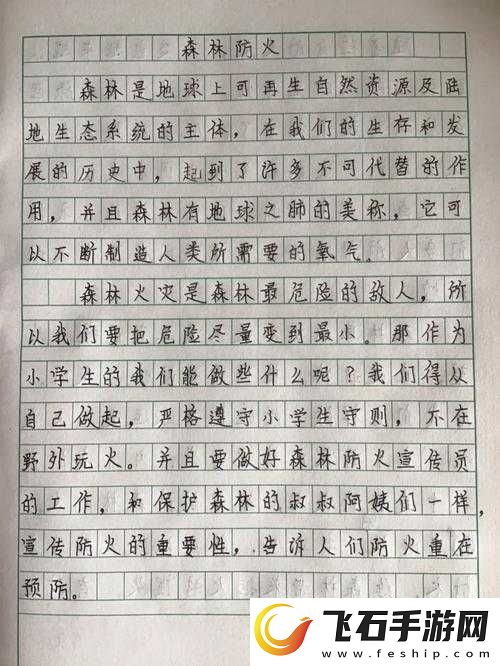 森林防火
森林是地球上可再生自然资源及陆
地生态系统的主体，在我们的生存和发
展的历史中，起到了许多不可代替的作
用，并且森林有地球之肺的美称，它可
以不断制造人类所需要的氧气。
森林火灾是森林最危险的敌人，所
以我们要把危险尽量变到最小。那作为
小学生的我们能做些什么呢？我们得从
自己做起，严格遵守小学生守则，不在
野外玩火。并且要做好森林防火宣传员
的工作，和保护森林的叔叔阿姨们一样，
宣传防火的重要性，告诉人们防火重在
预防。
飞石手游网
www.feship.com